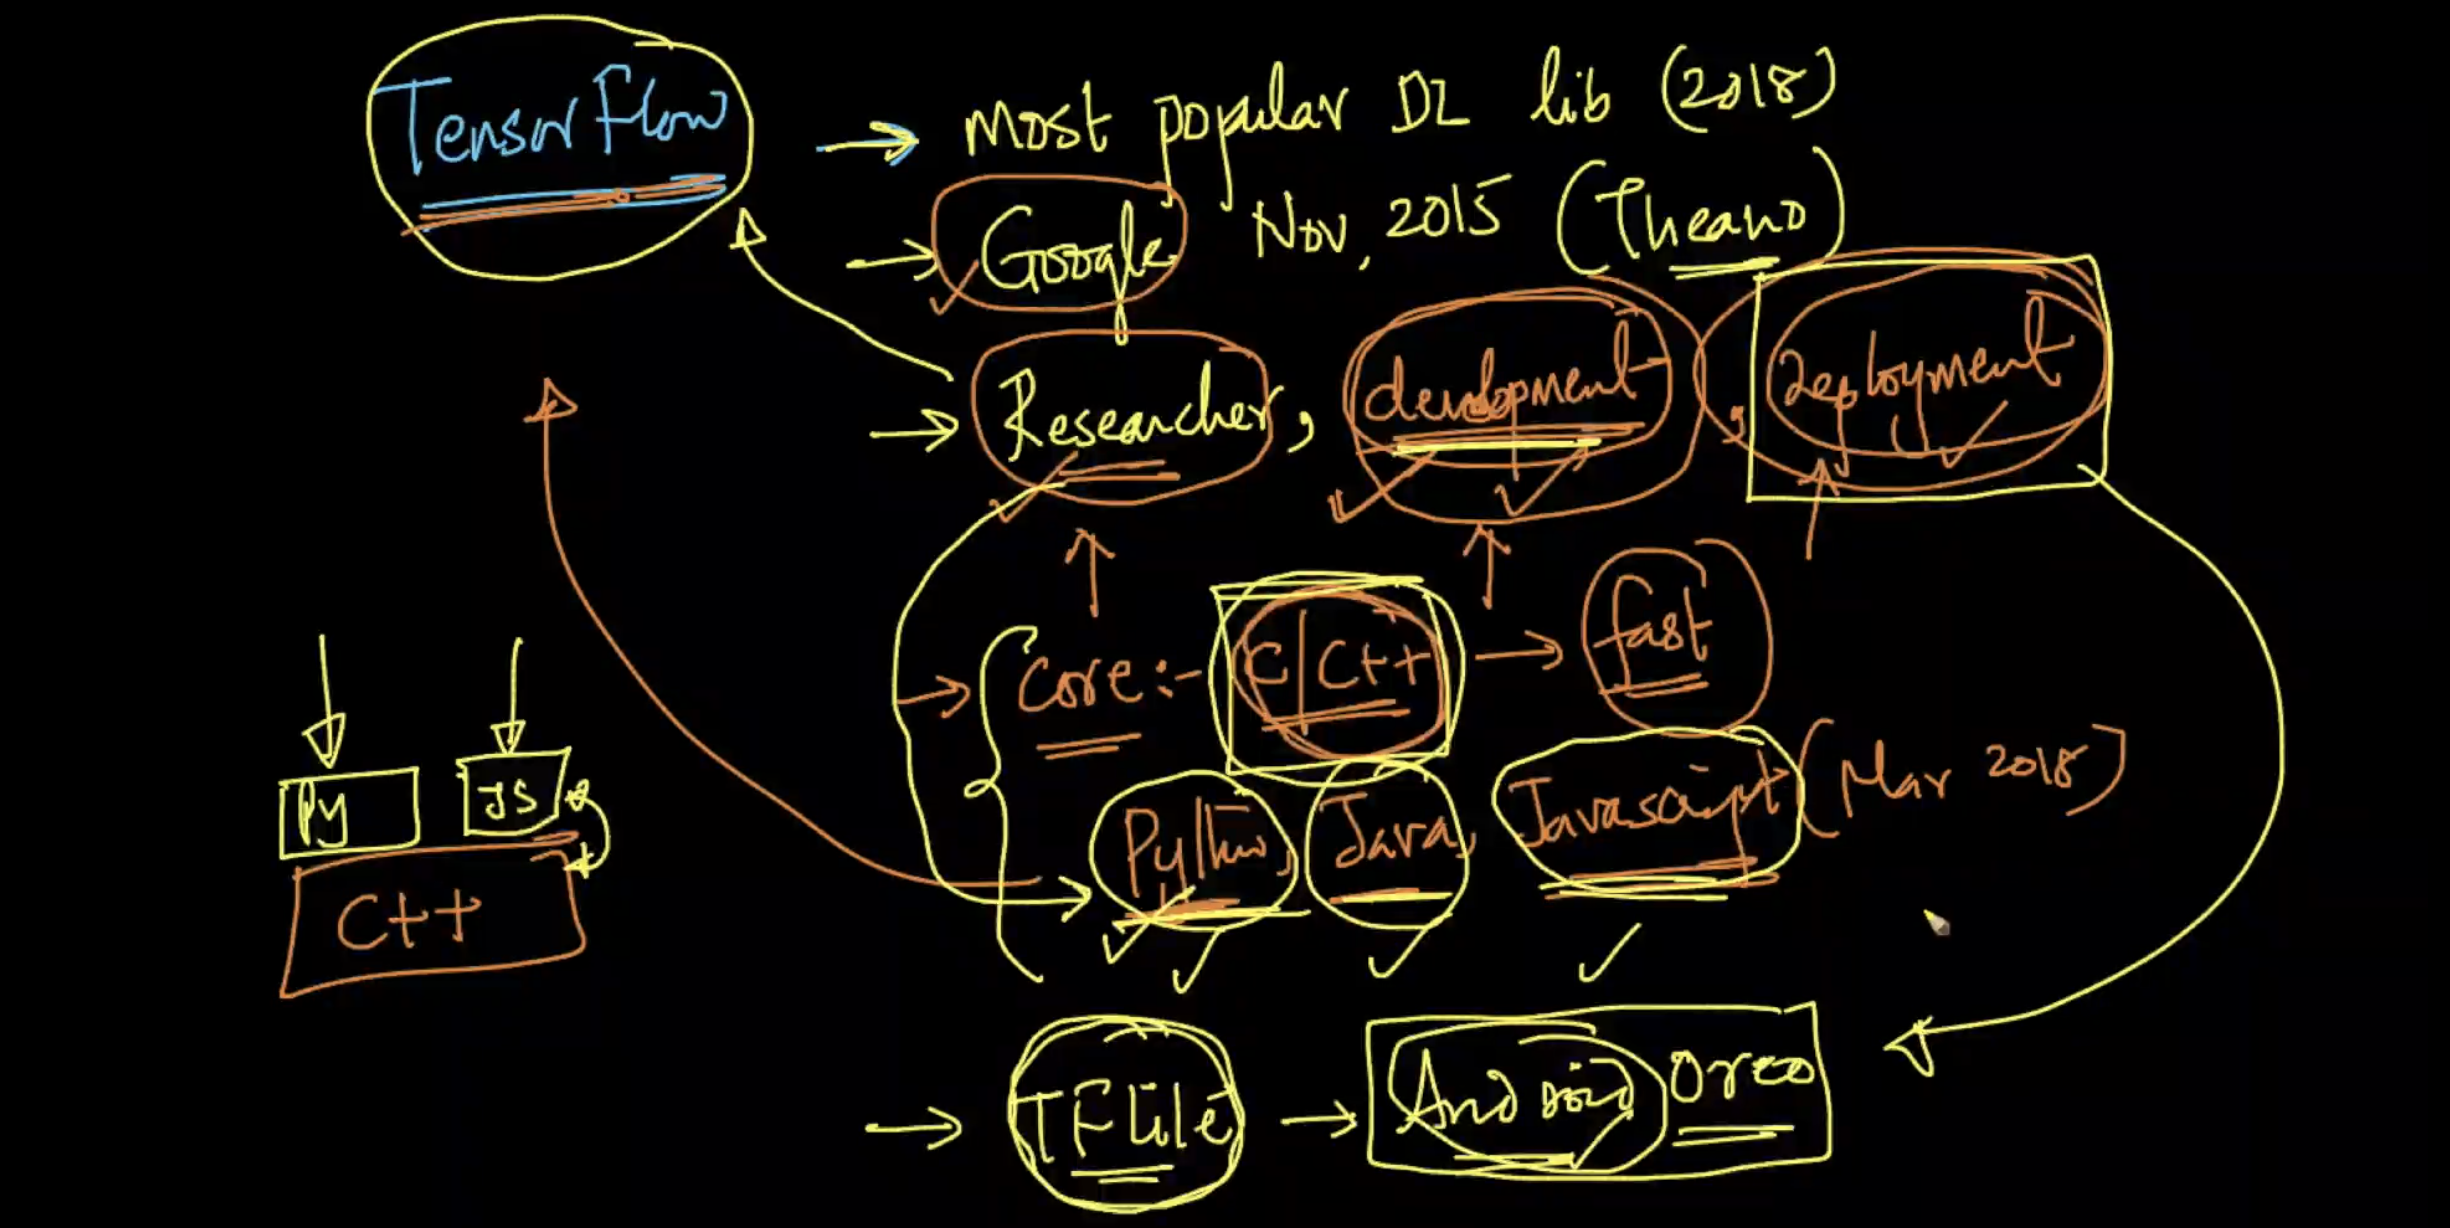 TensorFlow → Most popular DL lib (2018)
→ Google Nov, 2015 (Theano)
→ Researcher, development, Deployment
→ Core:- C/C++ → fast
Python, Java, Javascript (Mar 2018)
Py JS
C++
→ TFLite → Android Oreo